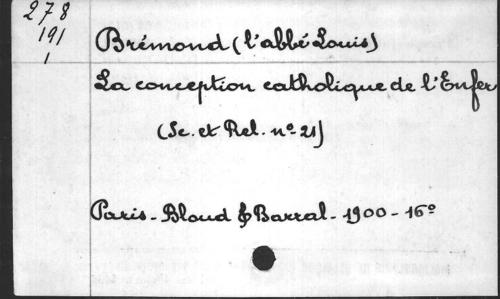 278
191
1
Brémond (l'abbé Louis)
La conception catholique de l'Enfer
(Sc. et Rel. nº 21)
Paris - Bloud & Barral - 1900 - 16º